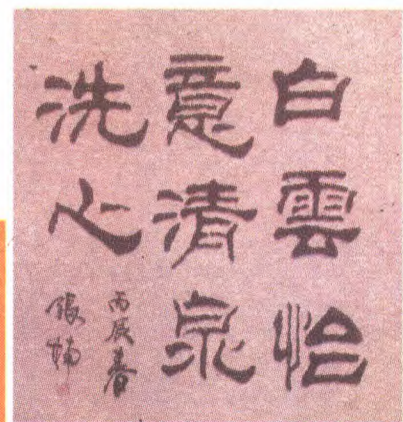 白雲怡
意清泉
洗心
丙辰春
張楠